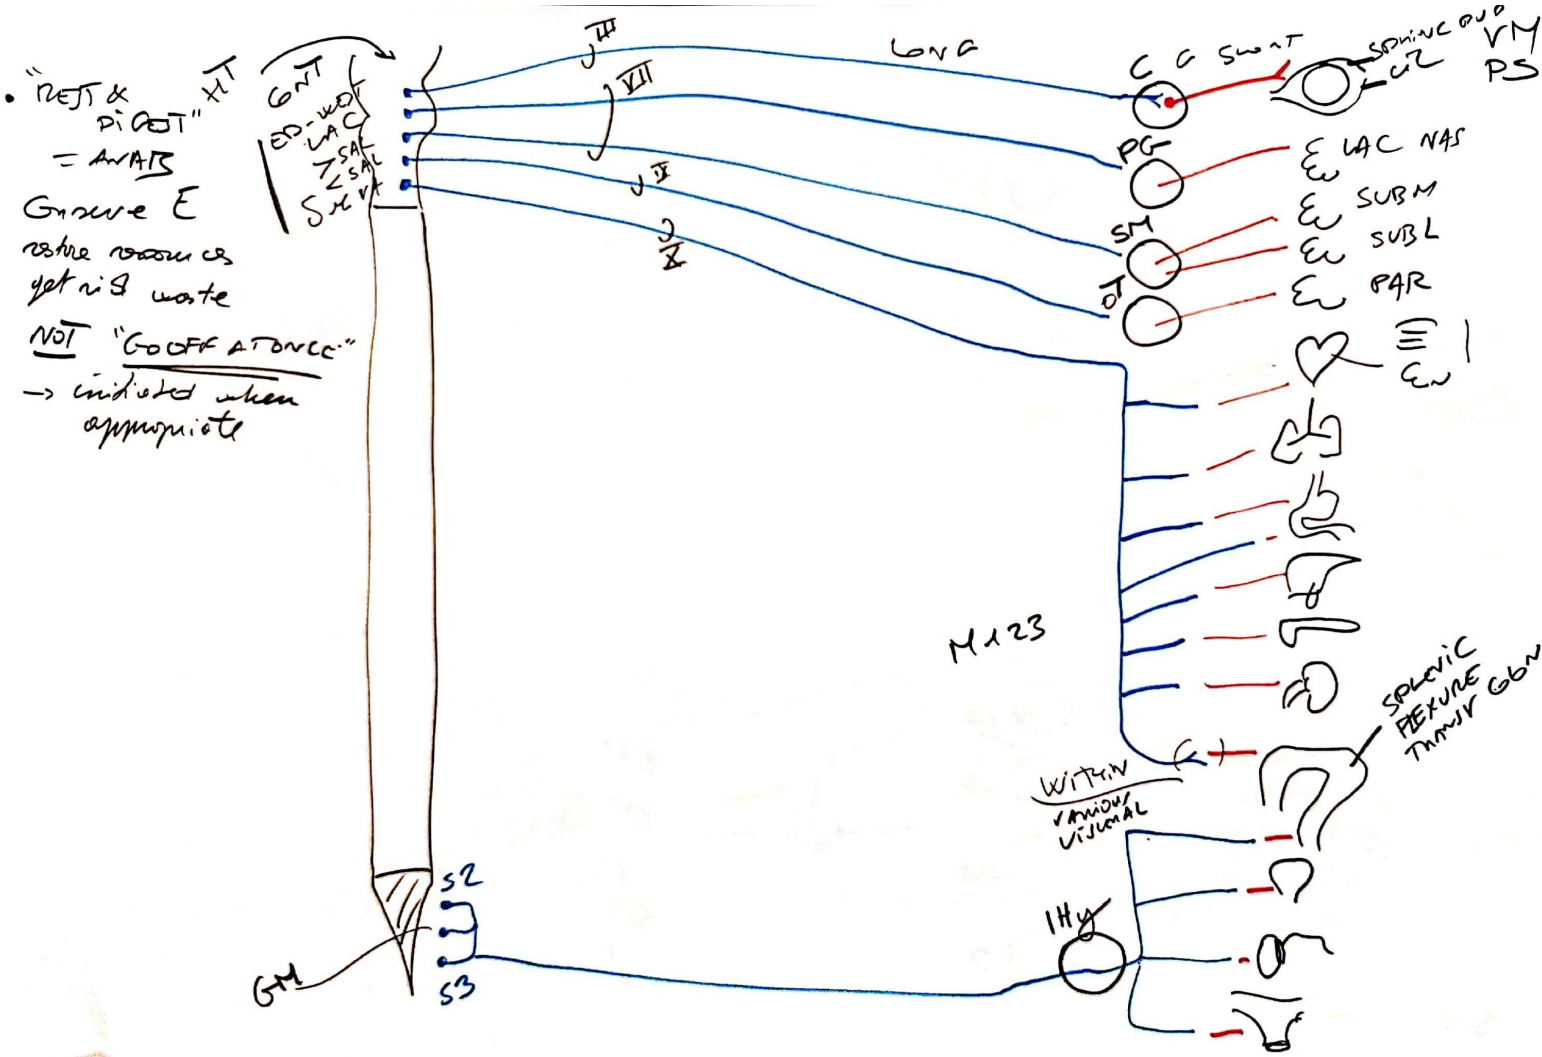 • "REST &
DIGEST"
= ANAB
Conserve E
restore resources
get rid waste
NOT "GO OFF AT ONCE"
→ initiated when
appropriate
HT
CONT
ED-WE
LAC
SAL
SAL
III
VII
IX
X
LONG
CG SHORT
VM
PS
PG
LAC NAS
SM
SUBM
SUBL
OT
PAR
M123
SPLENIC
FLEXURE
TRANSV COLON
WITHIN
VARIOUS
VISCERAL
S2
S3
GM
IHy